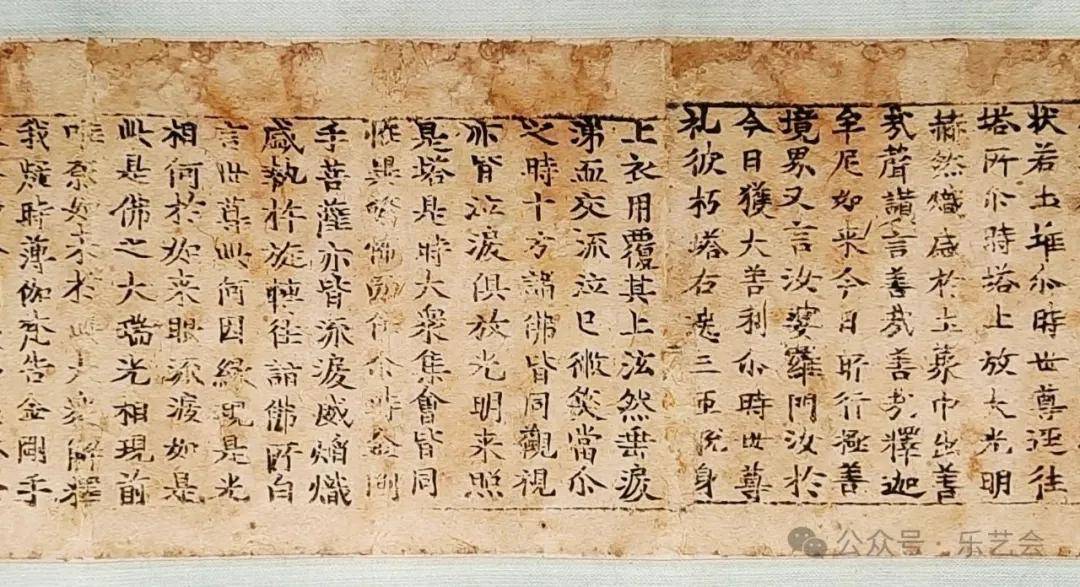 状若土堆尒時世尊迳往
塔所尒時塔上放大光明
赫然熾盛於土聚中出善
㢤聲讃言善㢤善㢤釋迦
牟尼如来今日所行極善
境界又言汝婆羅門汝於
今日獲大善利尒時世尊
礼彼朽塔右遶三匝脱身
上衣用覆其上泫然垂淚
涕血交流泣已微笑當尒
之時十方諸佛皆同觀視
亦皆泣淚俱放光明来照
是塔是時大衆集會皆同
恠異尒時金剛
手菩薩亦皆流淚威焰熾
盛執杵旋轉往詣佛所白
言世尊此何因緣現是光
相何於如来眼流淚如是
此是佛之大瑞光相現前
唯如来於此大衆解釋
我疑時薄伽梵告金剛手
公众号·乐艺会